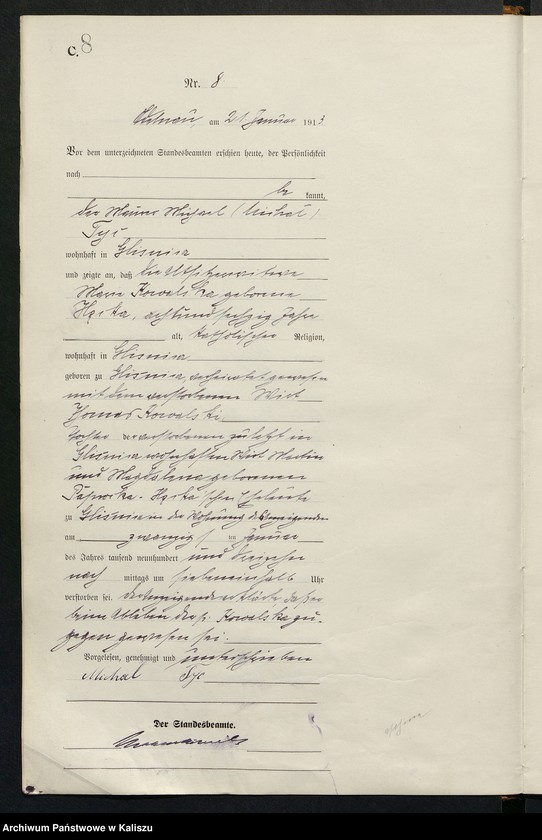 C. 8
Nr. 8
am 21 Januar 1913.
Vor dem unterzeichneten Standesbeamten erschien heute, der Persönlichkeit
nach
be kannt,
der Maurer Michael (Michal)
Tyc
wohnhaft in Glisnica
und zeigte an, daß die Altsitzerwitwe
Marie Kowalska geborene
achtundsechzig Jahre
alt, katholischer Religion,
wohnhaft in Glisnica
geboren zu Glisnica, verheiratet gewesen
mit dem verstorbenen Wirt
Thomas Kowalski
Tochter der verstorbenen zuletzt in
Glisnica wohnhaften Wirt Martin
und Magdalena geborenen
schen Eheleute
zu Glisnica in der Wohnung des Anzeigenden
am zwanzigsten Januar
des Jahres tausend neunhundert und dreizehn
nach mittags um siebeneinhalb Uhr
verstorben sei. Der Anzeigende erklärte, daß er
beim Ableben der p. Kowalska zu-
gegen gewesen sei.
Vorgelesen, genehmigt und unterschrieben
Michal Tyc
Der Standesbeamte.
Archiwum Państwowe w Kaliszu